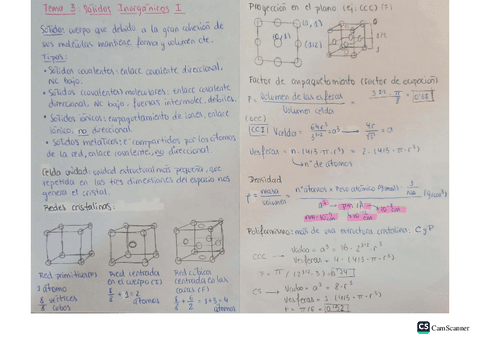 Tema 3: Sólidos Inorgánicos I
Sólido: cuerpo que debido a la gran cohesión de
sus moléculas mantiene forma y volumen cte.
Tipos:
• Sólidos covalentes: enlace covalente direccional,
NC bajo.
• Sólidos covalentes moleculares: enlace covalente
direccional. NC bajo. fuerzas intermolec. débiles.
• Sólidos iónicos: empaquetamiento de iones, enlace
iónico, no direccional.
• Sólidos metálicos: e⁻ compartidos por los átomos
de la red, enlace covalente, no direccional.
Celda unidad: unidad estructural más pequeña, que
repetida en las tres dimensiones del espacio nos
genera el cristal.
Redes cristalinas:
Red primitiva (P)
1 átomo
8/8 vértices
8/8 cubos
Red centrada
en el cuerpo (I)
8/8 + 1 = 2
átomos
Red cúbica
centrada en las
caras (F)
8/8 + 6/2 = 1+3 = 4
átomos
Proyección en el plano (ej. CCC) (I):
(0,1)
(1/2)
Factor de empaquetamiento (Factor de ocupación)
Volumen de las esferas
Volumen celda
= 0'68
(CCC)
CCI
Vesferas = n · (4/3 · π · r³) = 2 · (4/3 · π · r³)
n = nº de átomos
Densidad
ρ = masa
volumen
Polimorfismo: más de una estructura cristalina: C y P
CCC
Vcubo = a³ = 16 · 2^(1/2) · r³
Vesferas = 4 · (4/3 · π · r³)
0'74
CS
Vcubo = a³ = 8 · r³
Vesferas = 1 (4/3 · π · r³)
F = π/6 = 0'52
CS CamScanner